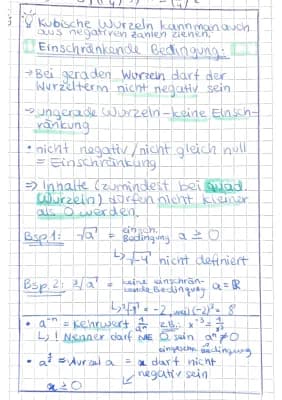 Kubische Wurzeln kann man auch
aus negativen Zahlen ziehen.
Einschränkende Bedingung:
→ Bei geraden Wurzeln darf der
Wurzelterm nicht negativ sein
→ ungerade Wurzeln - keine Einsch-
ränkung
• nicht negativ / nicht gleich null
= Einschränkung
⇒ Inhalte (zumindest bei quad.
Wurzeln) dürfen nicht kleiner
als 0 werden.
Bsp. 1: √a = einsch. Bedingung a ≥ 0
↳ √-4 nicht definiert
Bsp. 2: ³√a = keine einschrän-
kende Bedingung a = ℝ
↳ ³√-8 = -2, weil (-2)³ = 8
• a⁻ⁿ = Kehrwert 1/aⁿ z.B.: x⁻³ = 1/x³
↳ ! Nenner darf NIE 0 sein aⁿ ≠ 0
einschr. Bedingung
= Wurzel a = a darf nicht
negativ sein
a ≥ 0